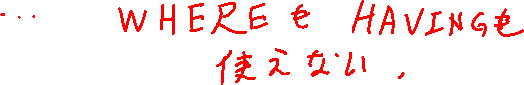 ... WHEREも HAVINGも
使えない.